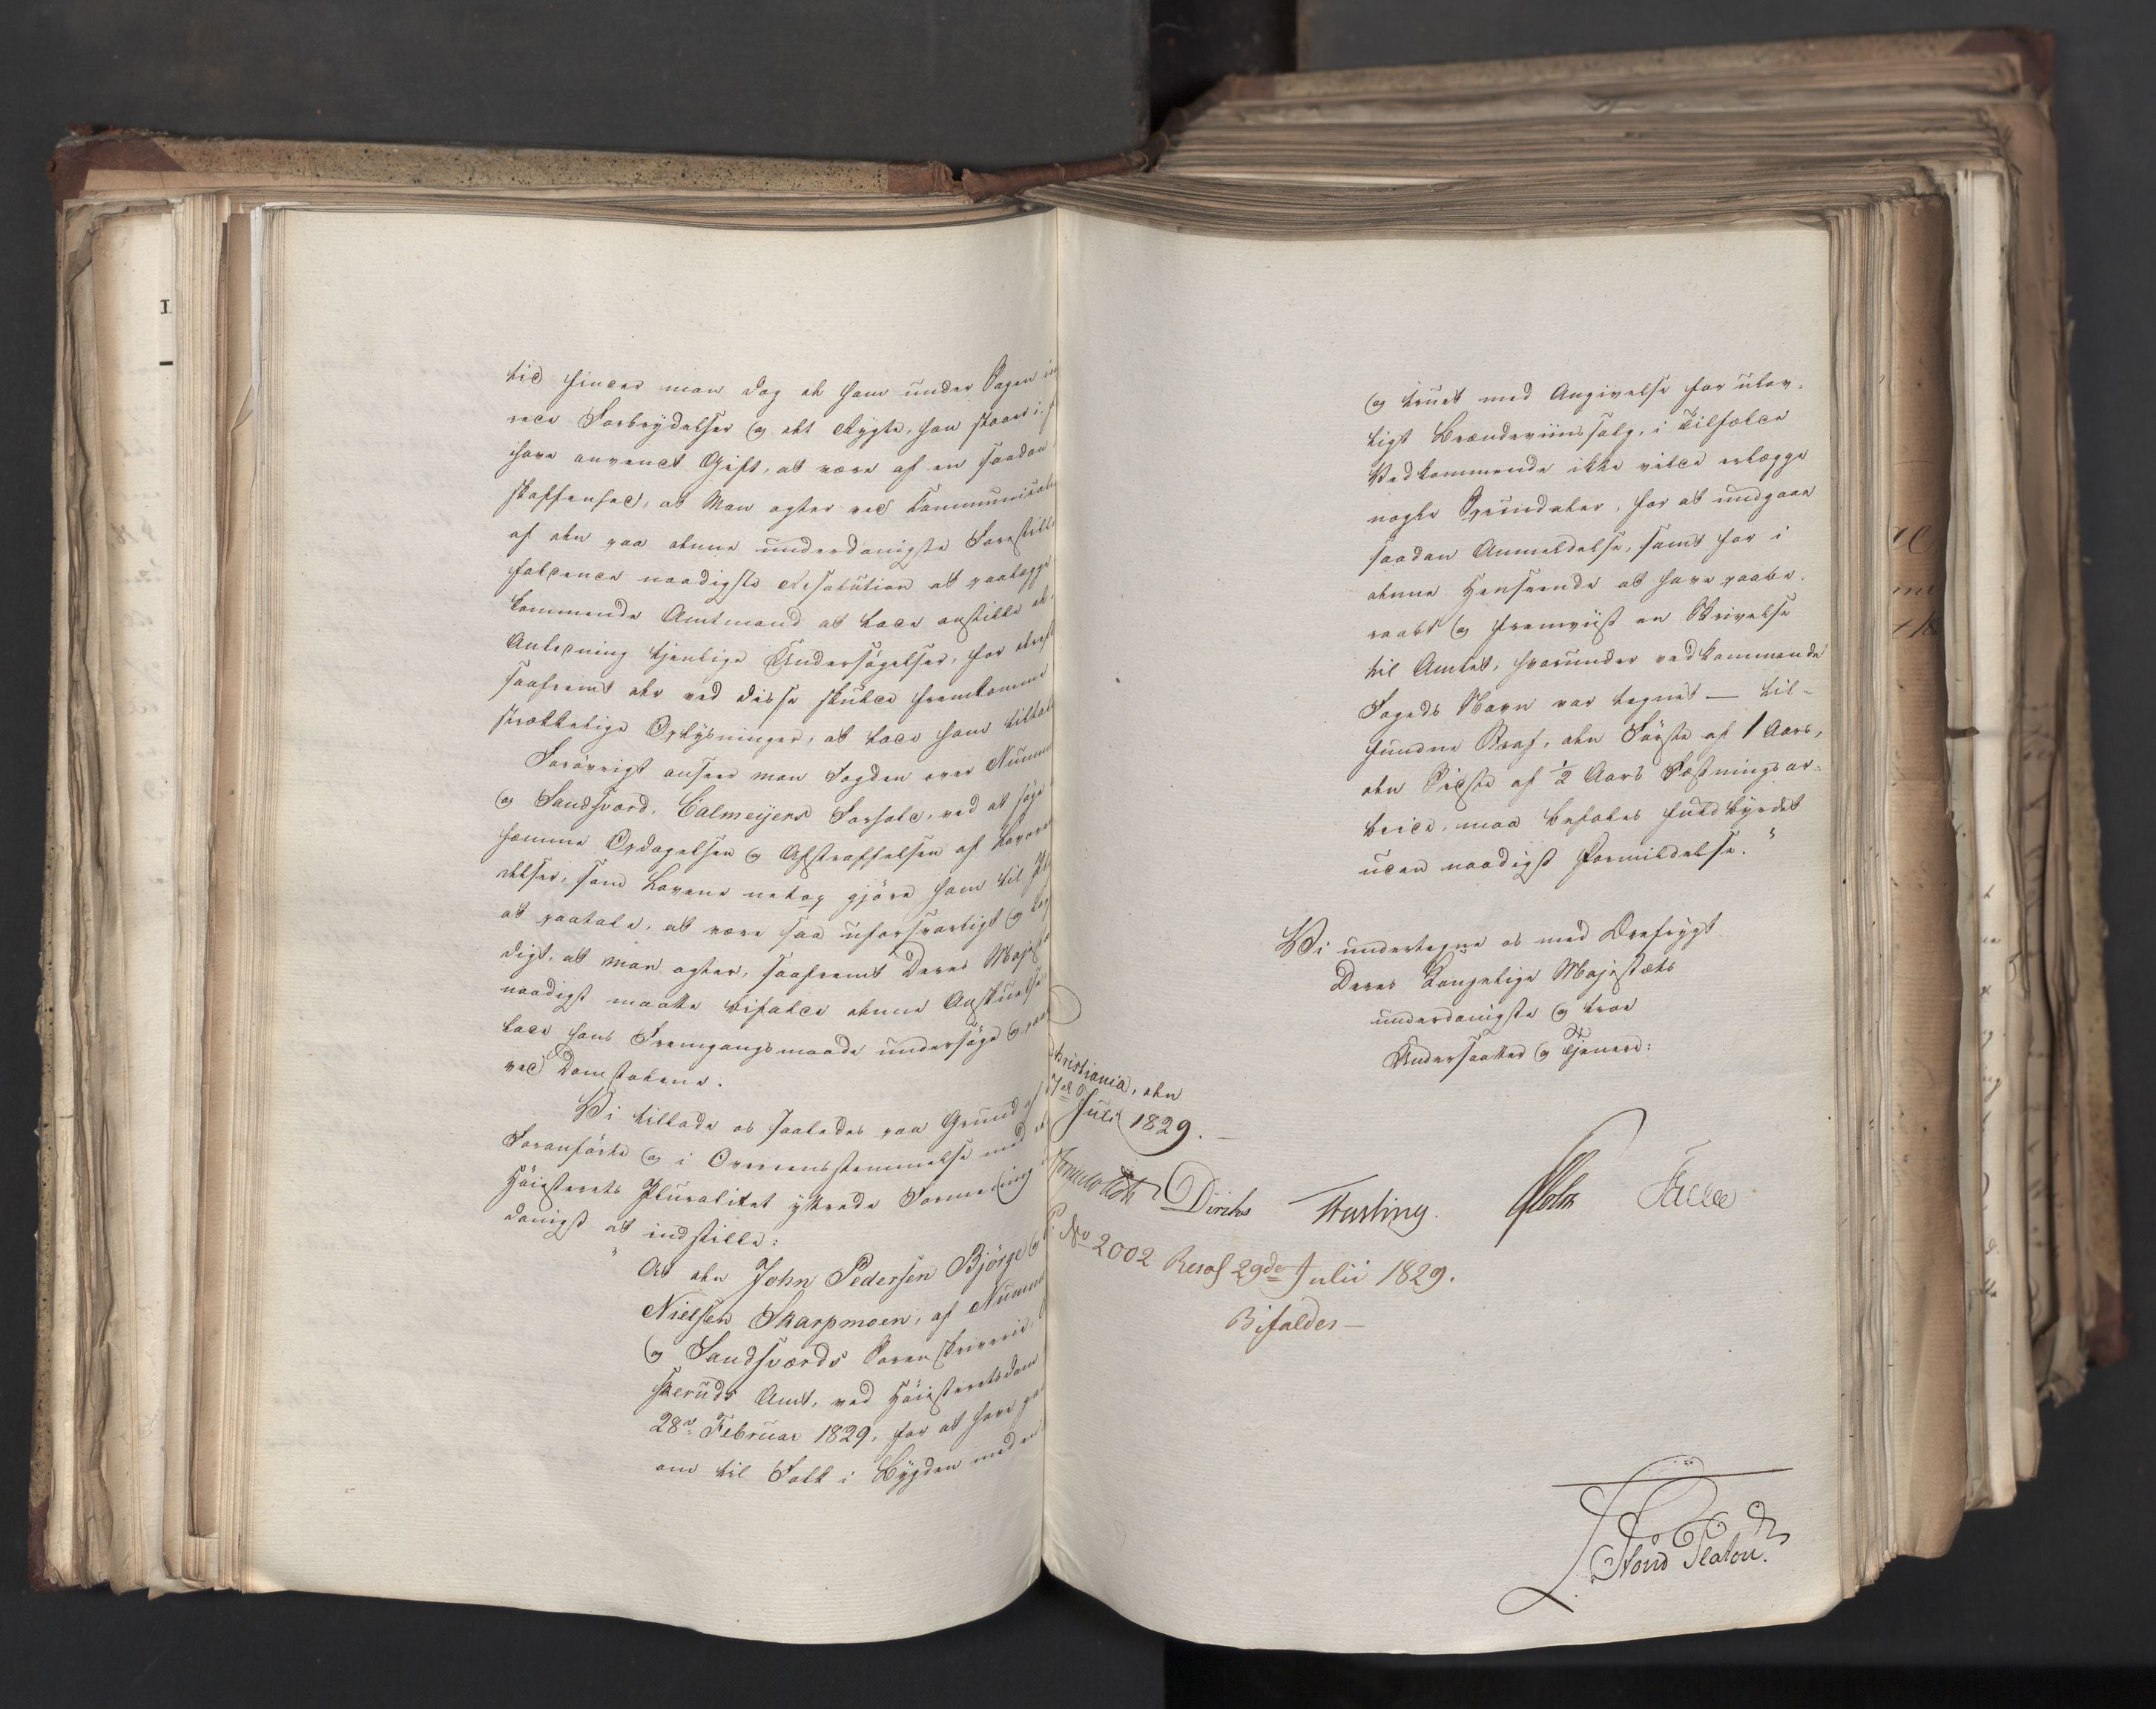 tid finder man dog at ham under Sagen
rede Forbrydelser og det Rygte, han staaer i,
have anvendt Gift, at være af en saadan
skaffenhed, at Man agter ved Communication
af den paa denne underdanigste Forestilli
faldende naadigste Resolution at paalægge
kommende Amtmand at lade anstille
Anledning tjenlige Undersøgelser, for
saafremt der ved disse skulde fremkomme
strækkelige Oplysninger, at lade ham tiltale
Forøvrigt anseer man Fogden over Numme
og Sandsværd, Calmeijers Forhold, ved at søge
hæmme Opdagelsen og Afstraffelsen af
delser, som Lovene netop gjøre ham til
at paatale, at være saa uforsvarligt og
digt, at man agter, saafremt Deres Maje
naadigst maatte bifalde denne Anskuelse
lade hans Fremgangsmaade undersøge og
ved Domstolene.
Vi tillade os saaledes paa Grund af
Foranførte og i Overeensstemmelse med
Høiesterets Pluralitet yttrede Formening
danigst at indstille:
"At den John Pedersen Bjørge og
Nielsen Skarpmoen, af Numme
og Sandsværds Sorenskriverie,
skeruds Amt, ved Høiesteretsdom
28de Februar 1829, for at have
om til Folk i Bygden med
og truet med Angivelse for ulov-
ligt Brændeviinssalg, i Tilfælde
Vedkommende ikke vilde erlægge
nogle Speciedaler, for at undgaae
saadan Anmeldelse, samt for i
denne Henseende at have paabe-
raabt og fremviist en Skrivelse
til Amtet, hvorunder vedkommende
Fogeds Navn var tegnet — til-
fundne Straf, den Første af 1 Aars,
den Sidste af ½ Aars Fæstningsar-
beide, maa befales fuldbyrdet
uden naadigst Formildelse."
Vi undertegne os med Ærefrygt
Deres Kongelige Majestæts
underdanigste og troe
Undersaatter og Tjenere:
Christiania, den
Juli 1829.—
Diriks Krefting. Holst Fasting
No 2002 Resol 29de Julii 1829.
Bifaldes—
Stoud Platou.